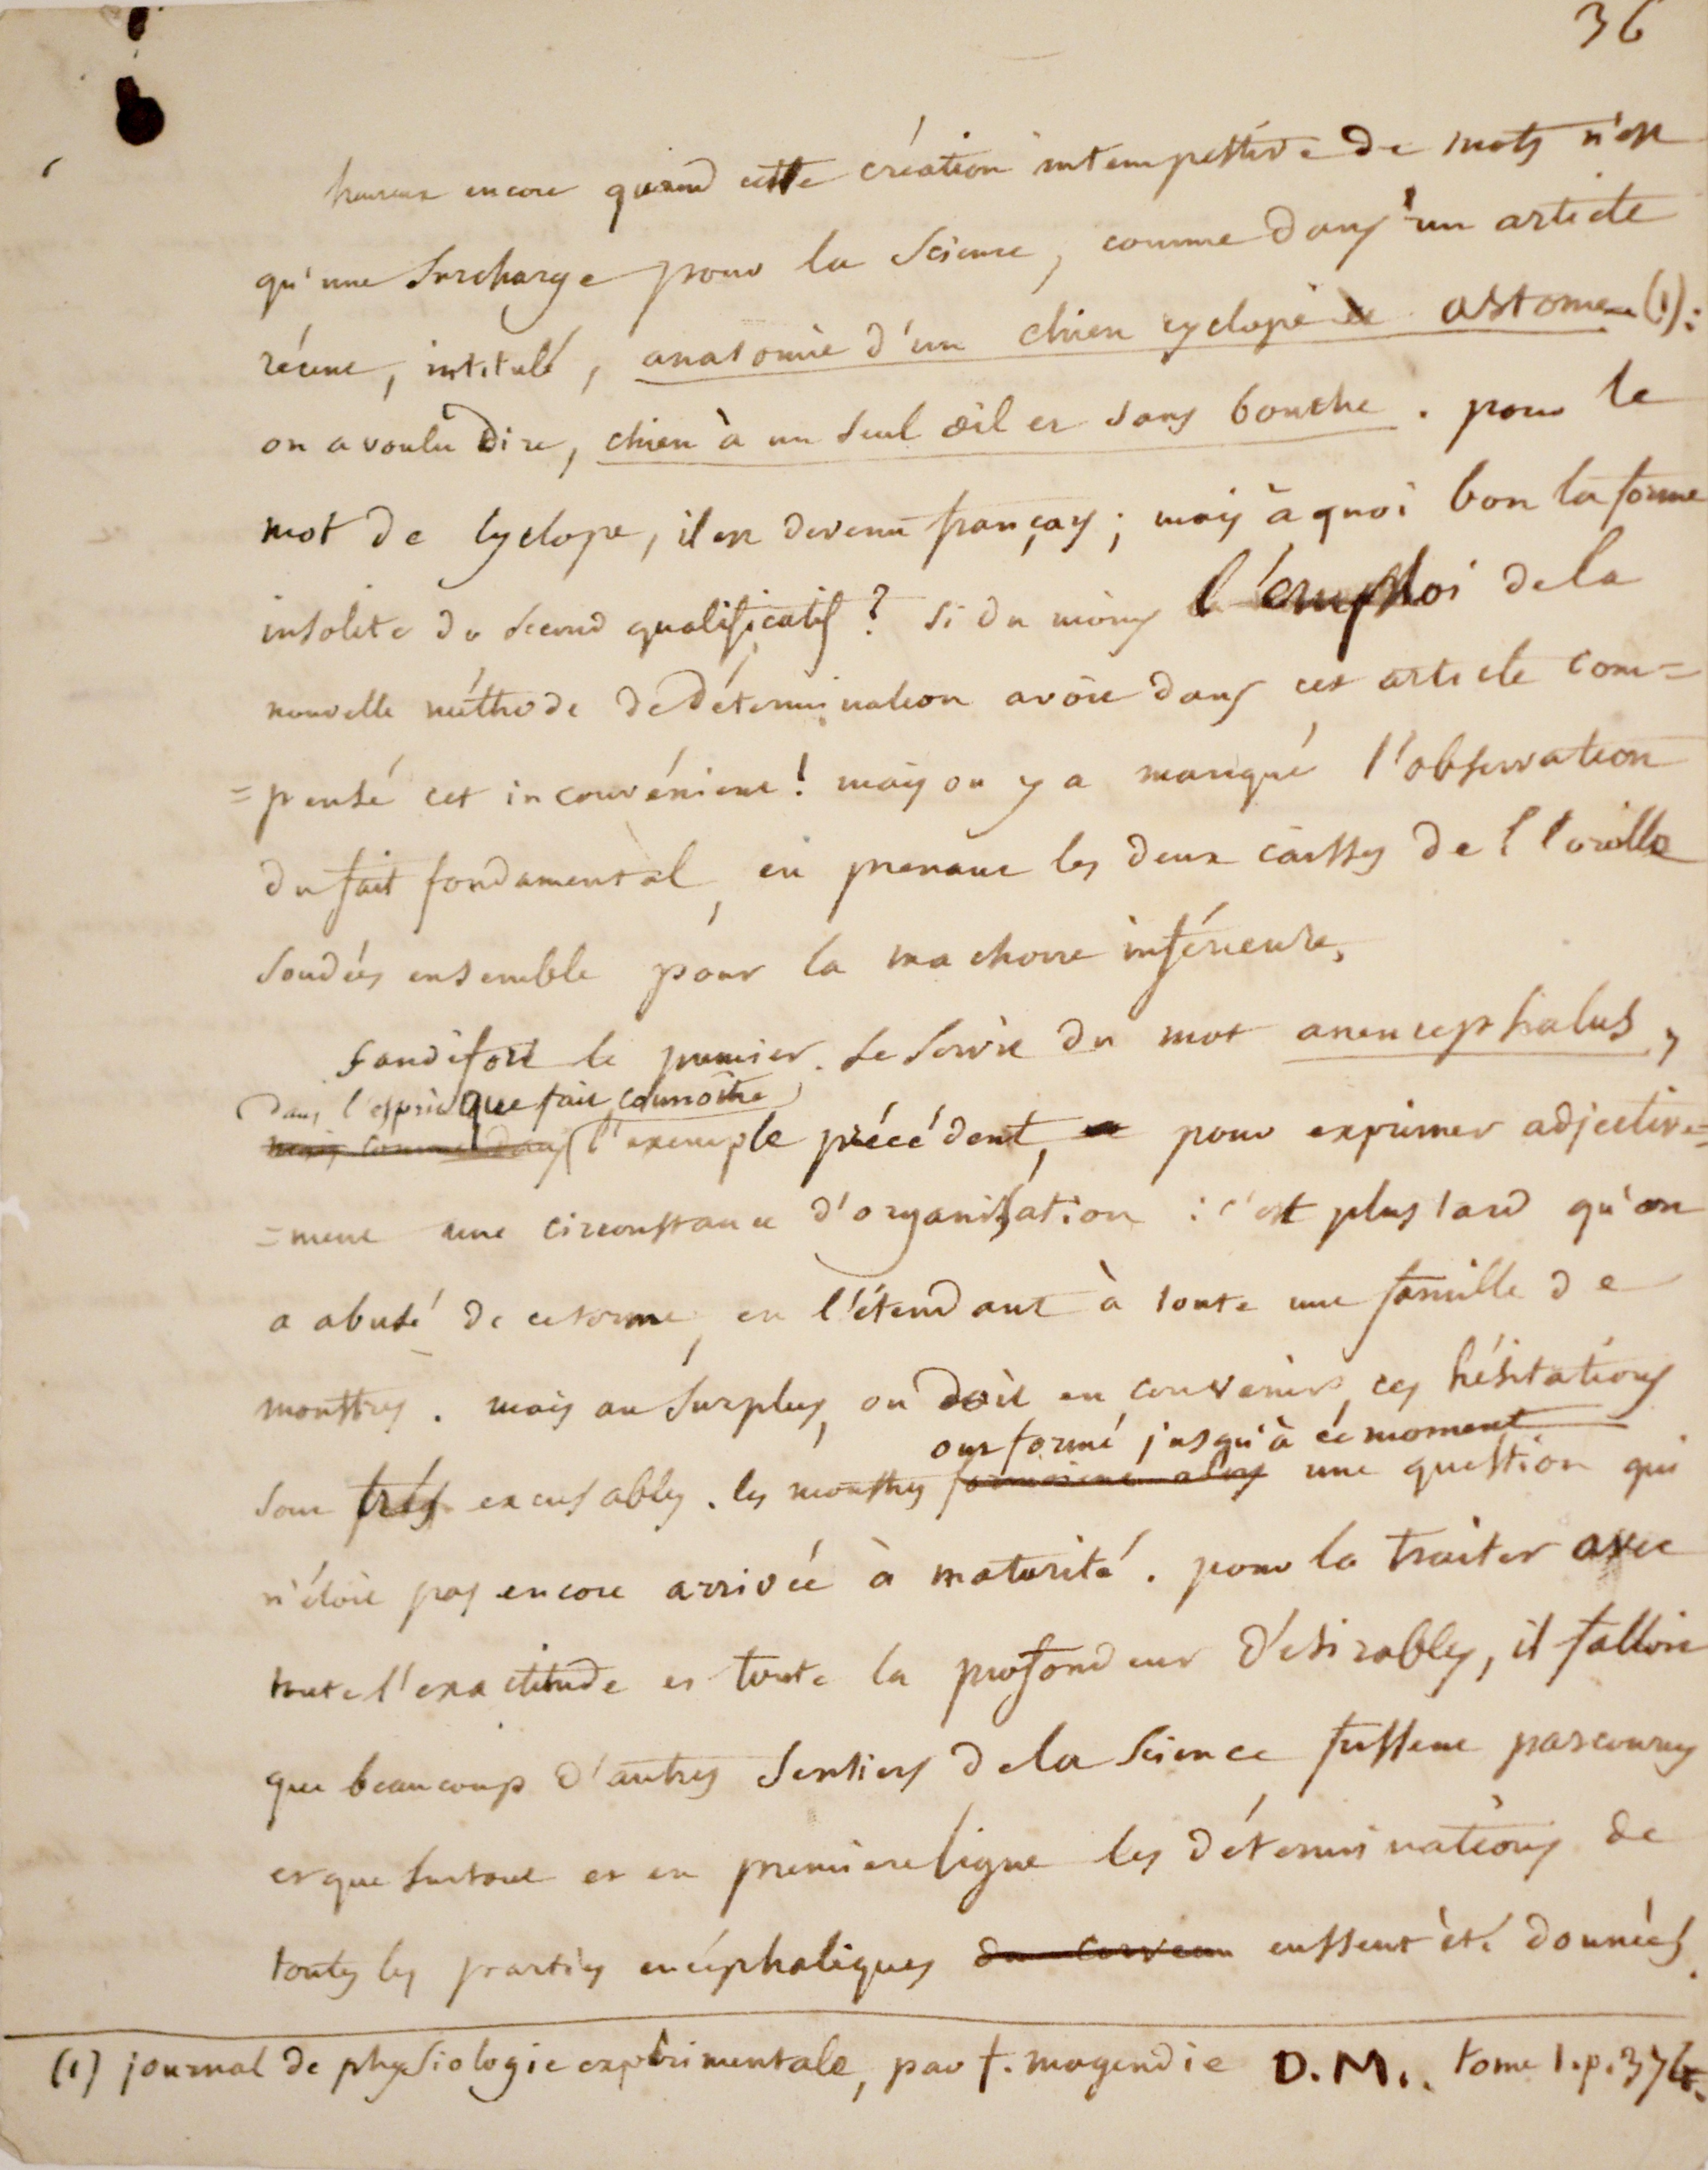 36
heureux encore quand cette création intempestive de mots n'est
qu'une surcharge pour la science, comme dans un article
récent, intitulé, anatomie d'un chien cyclope et astome (1):
on a voulu dire, chien à un seul œil et sans bouche. pour le
mot de cyclope, il est devenu français; mais à quoi bon la forme
insolite du second qualificatif? si du moins l'emploi de la
nouvelle méthode de détermination avoit dans cet article com=
=pensé cet inconvénient! mais on y a manqué l'observation
du fait fondamental, en prenant les deux caisses de l'oreille
soudées ensemble pour la machoire inférieure.
Sandifort le premier se servit du mot anencephalus,
dans l'esprit que fait connoître
mais comme dans l'exemple précédent, pour exprimer adjective=
=ment une circonstance d'organisation : c'est plus tard qu'on
a abusé de ce terme, en l'étendant à toute une famille de
monstres. mais au surplus, on doit en convenir, ces hésitations
ont formé jusqu'à ce moment
sont très excusables. les monstres formoient alors une question qui
n'étoit pas encore arrivée à maturité. pour la traiter avec
toute l'exactitude et toute la profondeur désirables, il falloit
que beaucoup d'autres sentiers de la science fussent parcourus,
et que surtout et en premiere ligne les déterminations de
toutes les parties encéphaliques du cerveau eussent été données.
(1) journal de physiologie expérimentale, par f. magendie D.M. tome 1. p. 374.